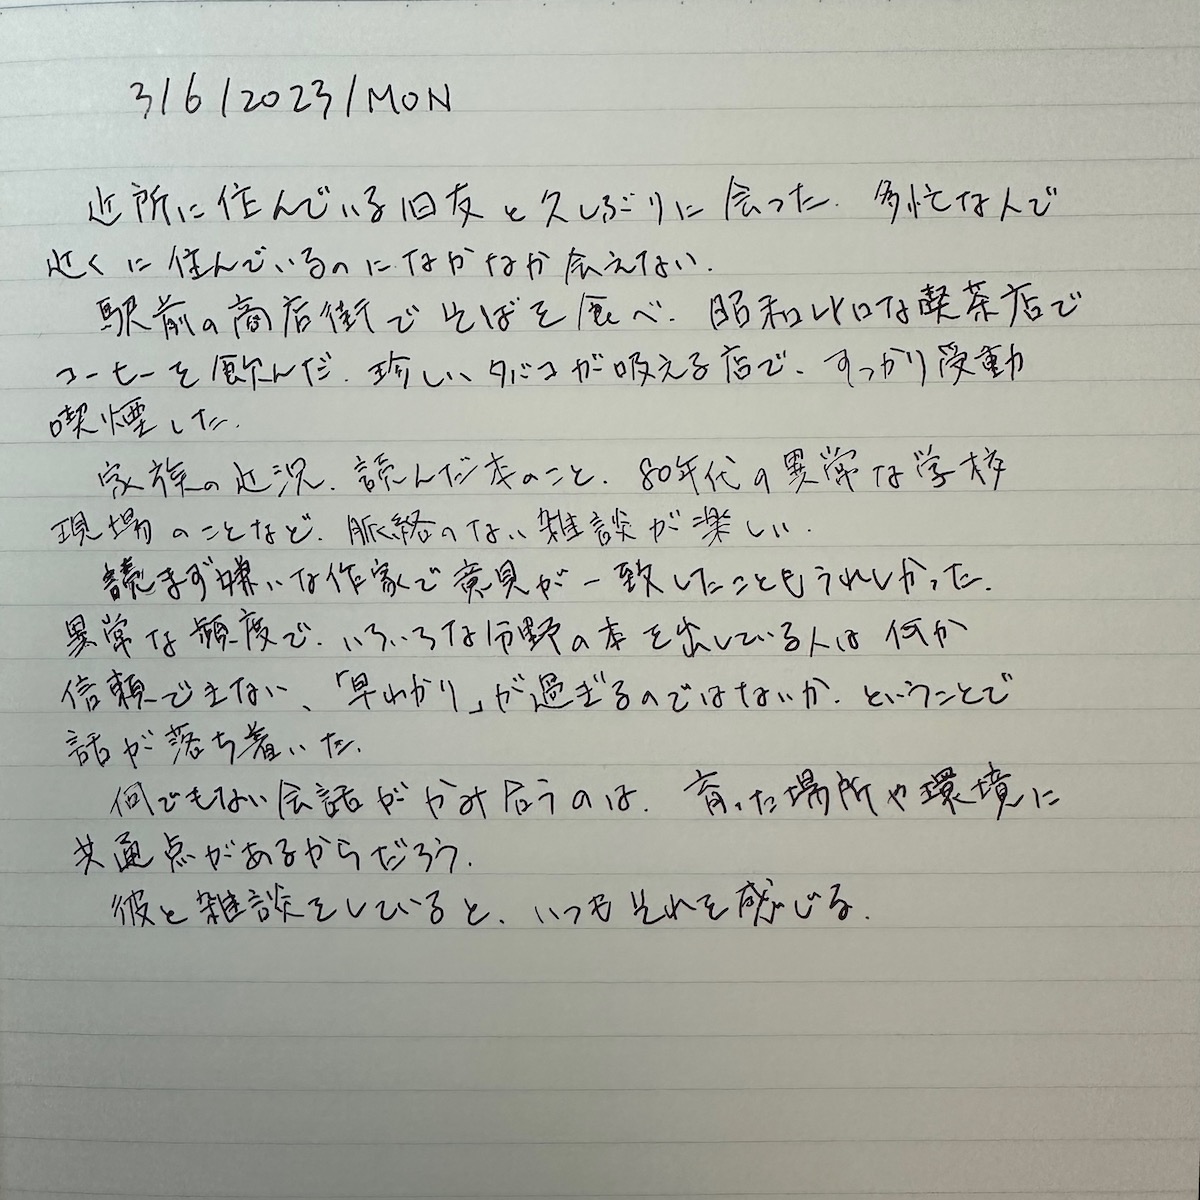 3/6/2023/MON
近所に住んでいる旧友と久しぶりに会った。多忙な人で
近くに住んでいるのになかなか会えない。
駅前の商店街でそばを食べ、昭和レトロな喫茶店で
コーヒーを飲んだ。珍しいタバコが吸える店で、すっかり受動
喫煙した。
家族の近況、読んだ本のこと、80年代の異常な学校
現場のことなど、脈絡のない雑談が楽しい。
読まず嫌いな作家で意見が一致したこともうれしかった。
異常な頻度で、いろいろな分野の本を出している人は何か
信頼できない、「早わかり」が過ぎるのではないか、ということで
話が落ち着いた。
何でもない会話がかみ合うのは、育った場所や環境に
共通点があるからだろう。
彼と雑談をしていると、いつもそれを感じる。